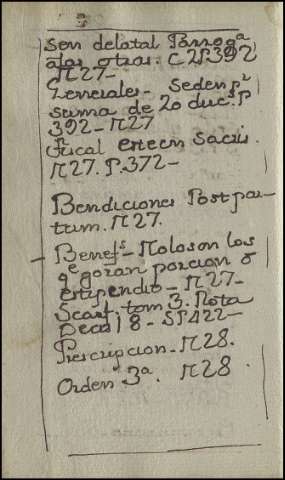 sen delatal Parrog.ª
alas otras. C2P392
N27-
Generales - Seden pr
suma de 20 duc. P
392 - N27
Fiscal este en Sacris.
N27. P.372-
Bendiciones Post par-
tum. N27.
- Benefs - No lo son los
qe gozan porcion o
estipendio - N27-
Scarf. tom 3. Nota
Decis 18 - SP422-
Prescripcion - N28.
Orden 3ª. N28.